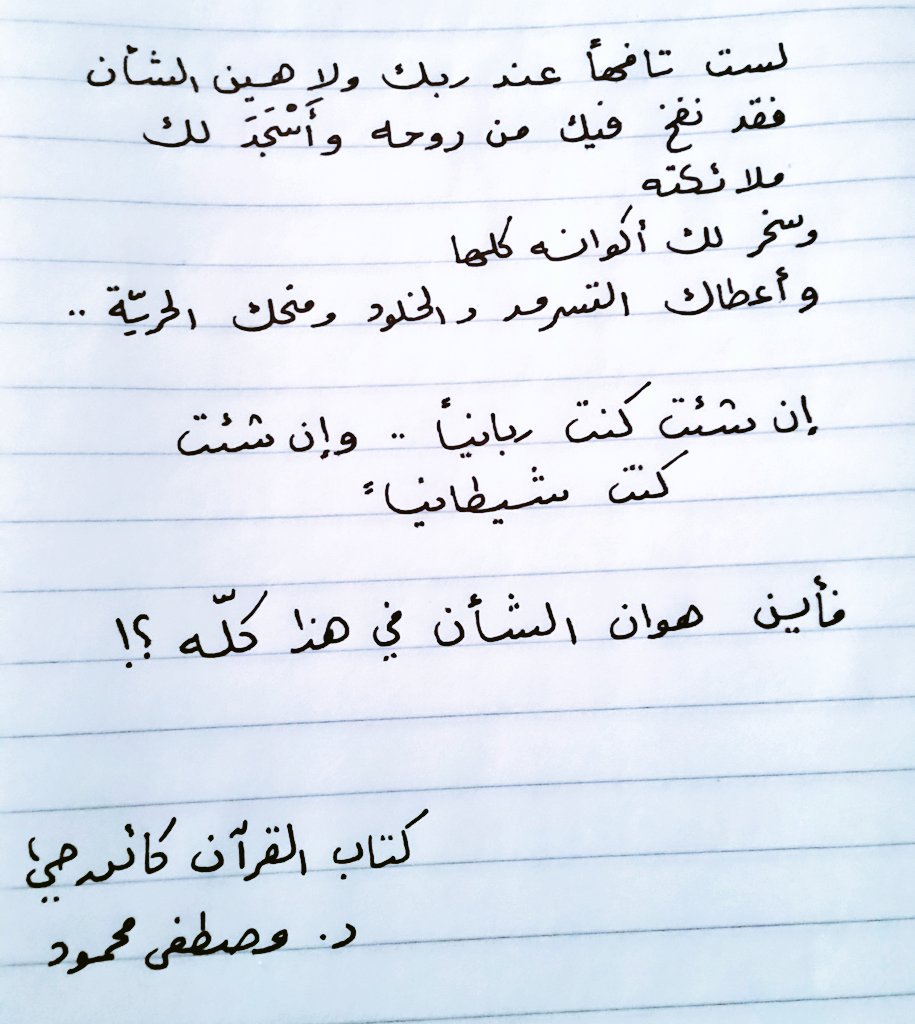 لست تافهاً عند ربك ولا هين الشأن
فقد نفخ فيك من روحه وأَسْجَدَ لك
ملائكته
وسخر لك أكوانه كلها
وأعطاك التسرمد والخلود ومنحك الحريّة ..
إن شئت كنت ربانياً .. وإن شئت
كنت شيطانياً
فأين هوان الشأن في هذا كلّه ؟!
كتاب القرآن كائن حيّ
د. مصطفى محمود